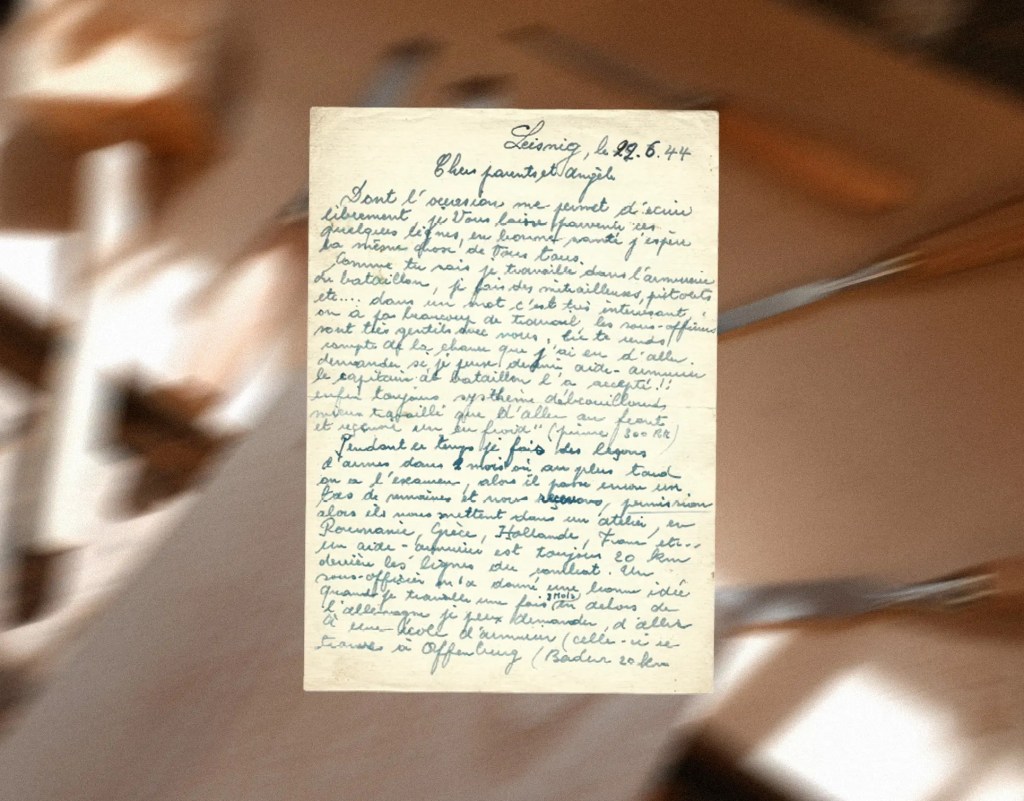 Leisnig, le 29.6.44
Chers parents et Angèle
Dont l'occasion me permet d'écrire
librement, je Vous laisse parvenir ces
quelques lignes, en bonne santé j'espère
la même chose de Vous tous.
Comme tu sais je travaille dans l'armurerie
de bataillon, je fais des mitrailleuses, pistolets
etc.... dans un mot c'est très interessant,
on à pas beaucoup de travail, les sous-officiers
sont très gentils avec nous, te rends
compte de la chance que j'ai eu d'aller
demander si je peux devenir aide-armurier
le capitaine de bataillon l'a accepté!!
enfin toujours systhème débrouillons,
mieux travaillé que d'aller au front
et reçevoir un en froid" (prime 300 RM)
Pendant ce temps je fais des leçons
d'armes dans 2 mois où au plus tard
on a l'examen, alors il passe encore un
tas de semaines et nous reçevons, permission
alors ils nous mettent dans un atelier, en
Roumanie, Grèce, Hollande, France etc...
un aide-armurier est toujours 20 km
derrière les lignes du combat. Un
sous-officier m'a donné une bonne idée
quand je travaille une fois 3 Mois en dehors de
l'allemagne je peux demander, d'aller
à une école d'armurier (celle-ci se
trouve à Offenburg (Baden 20 km